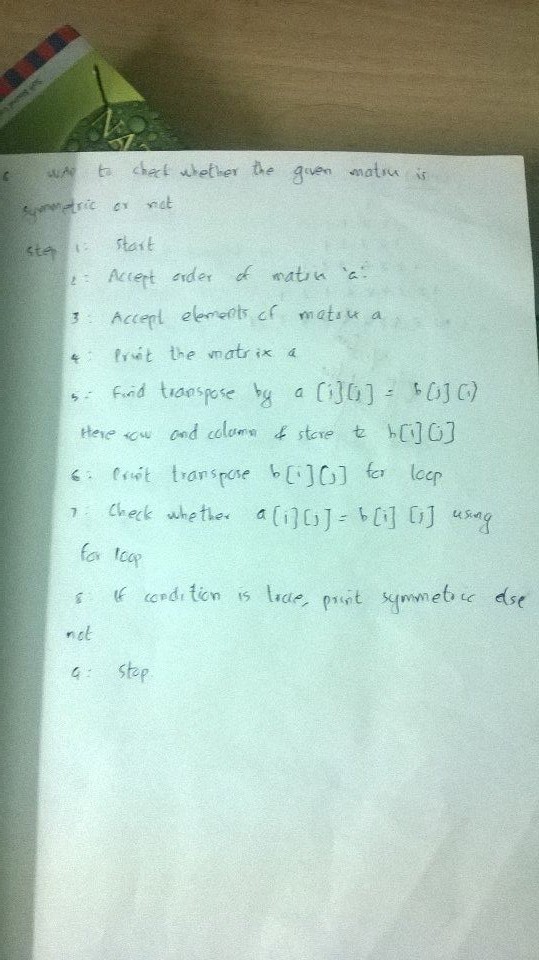 6 WAP to check whether the given matrix is
symmetric or not
Step 1: Start
2: Accept order of matrix 'a'.
3: Accept elements of matrix a
4: Print the matrix a
5: Find transpose by a[i][j] = b[j][i]
Here row and column & store to b[i][j]
6: Print transpose b[i][j] for loop
7: Check whether a[i][j] = b[i][j] using
for loop
8: If condition is true, print symmetric else
not
9: Stop